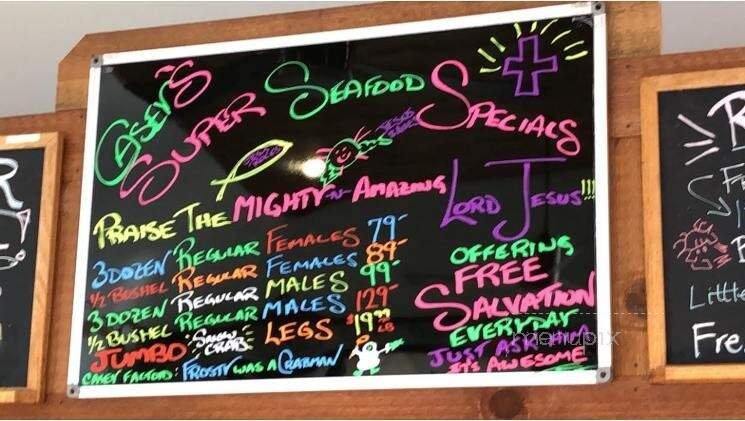 CASEY'S
SUPER SEAFOOD SPECIALS
JESUS RULES
PRAISE THE MIGHTY-N-AMAZING LORD JESUS!!!
3 DOZEN REGULAR FEMALES 79-
1/2 BUSHEL REGULAR FEMALES 89-
3 DOZEN REGULAR MALES 99-
1/2 BUSHEL REGULAR MALES 129-
JUMBO SNOW CRABS LEGS $19.99 LB
CASEY FACTOID: FROSTY WAS A CRABMAN
OFFERING
FREE
SALVATION
EVERYDAY
JUST ASK HIM
IT'S AWESOME
menupix
R
R
Little
Fre